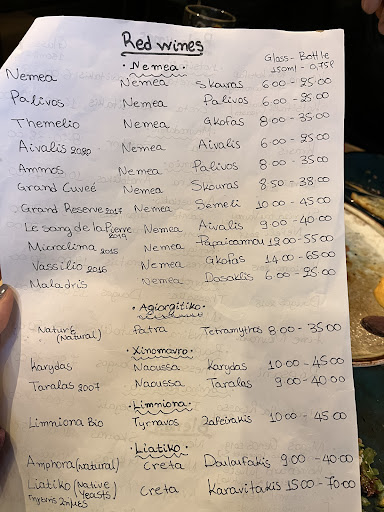 Red wines
Glass - Bottle
150ml - 0,75l
· Nemea ·
Nemea Nemea Skouras 6.00 - 25.00
Palivos Nemea Palivos 6.00 - 25.00
Themelio Nemea Gkofas 8.00 - 35.00
Aivalis 2020 Nemea Aivalis 6.00 - 25.00
Ammos Nemea Palivos 8.00 - 35.00
Grand Cuveé Nemea Skouras 8.50 - 38.00
Grand Reserve 2017 Nemea Semeli 10.00 - 45.00
Le sang de la Pierre 2019 Nemea Aivalis 9.00 - 40.00
Microclima 2015 Nemea Papaioannou 12.00 - 55.00
Vassilio 2016 Nemea Gkofas 14.00 - 65.00
Maladris Nemea Dasaklis 6.00 - 25.00
· Agiorgitiko ·
Nature (Natural) Patra Tetramythos 8.00 - 35.00
· Xinomavro ·
Karydas Naoussa Karydas 10.00 - 45.00
Taralas 2007 Naoussa Taralas 9.00 - 40.00
· Limniona ·
Limniona Bio Tyrnavos Zafeirakis 10.00 - 45.00
· Liatiko ·
Amphora (Natural) Creta Douloufakis 9.00 - 40.00
Liatiko (Native Yeasts) Creta Karavitakis 15.00 - 70.00